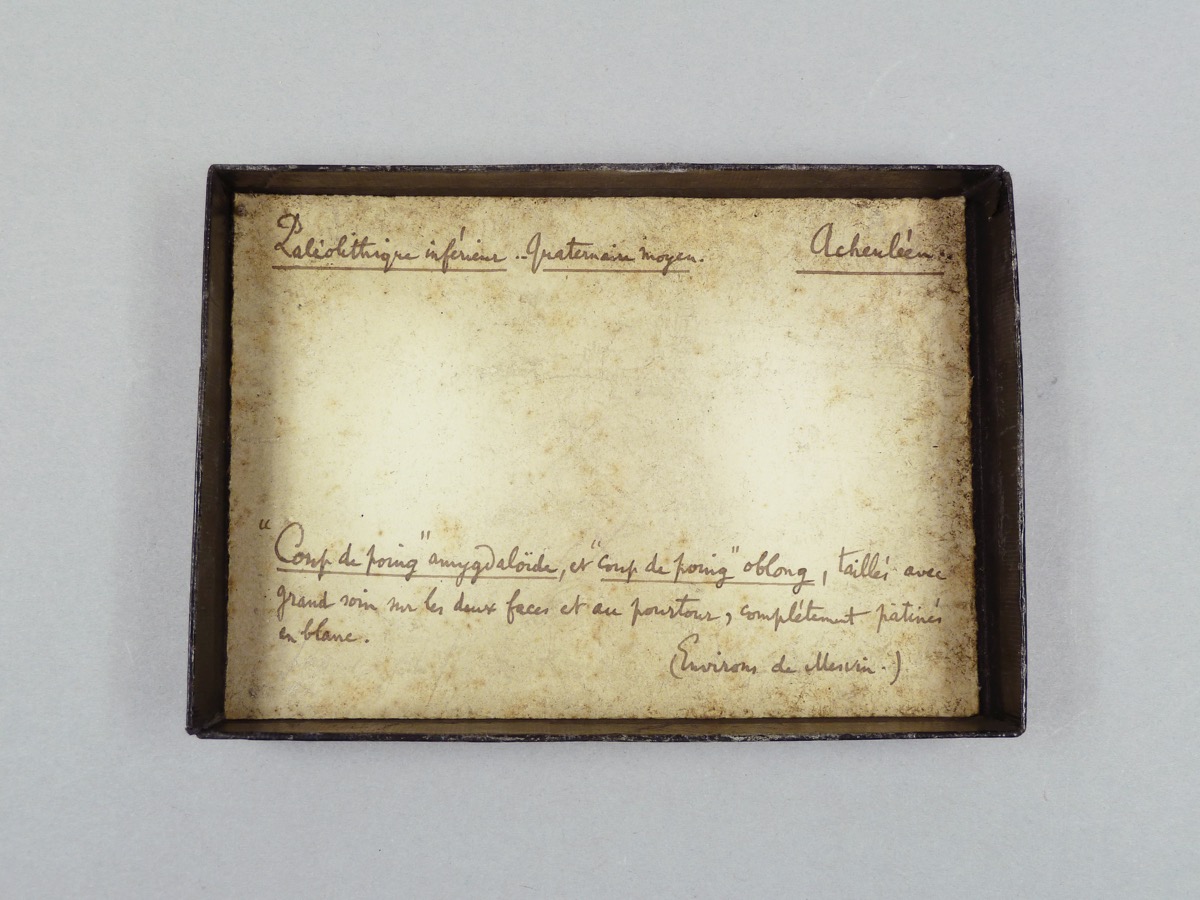 Paléolithique inférieur .. Quaternaire moyen. Acheuléen.
"Coup de poing" amygdaloïde, et "coup de poing" oblong, taillés avec
grand soin sur les deux faces et au pourtour, complétement patinés
en blanc.
(Environs de Mesvin.)